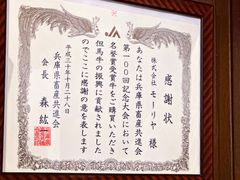 感謝状
株式会社 モーリヤ 様
あなたは兵庫県畜産共進会
第100回記念大会において
名誉賞受賞牛をご購買いただき
但馬牛の振興に貢献されました
のでここに感謝の意を表します
平成三十年十月二十八日
兵庫県畜産共進会
会長 森 紘一